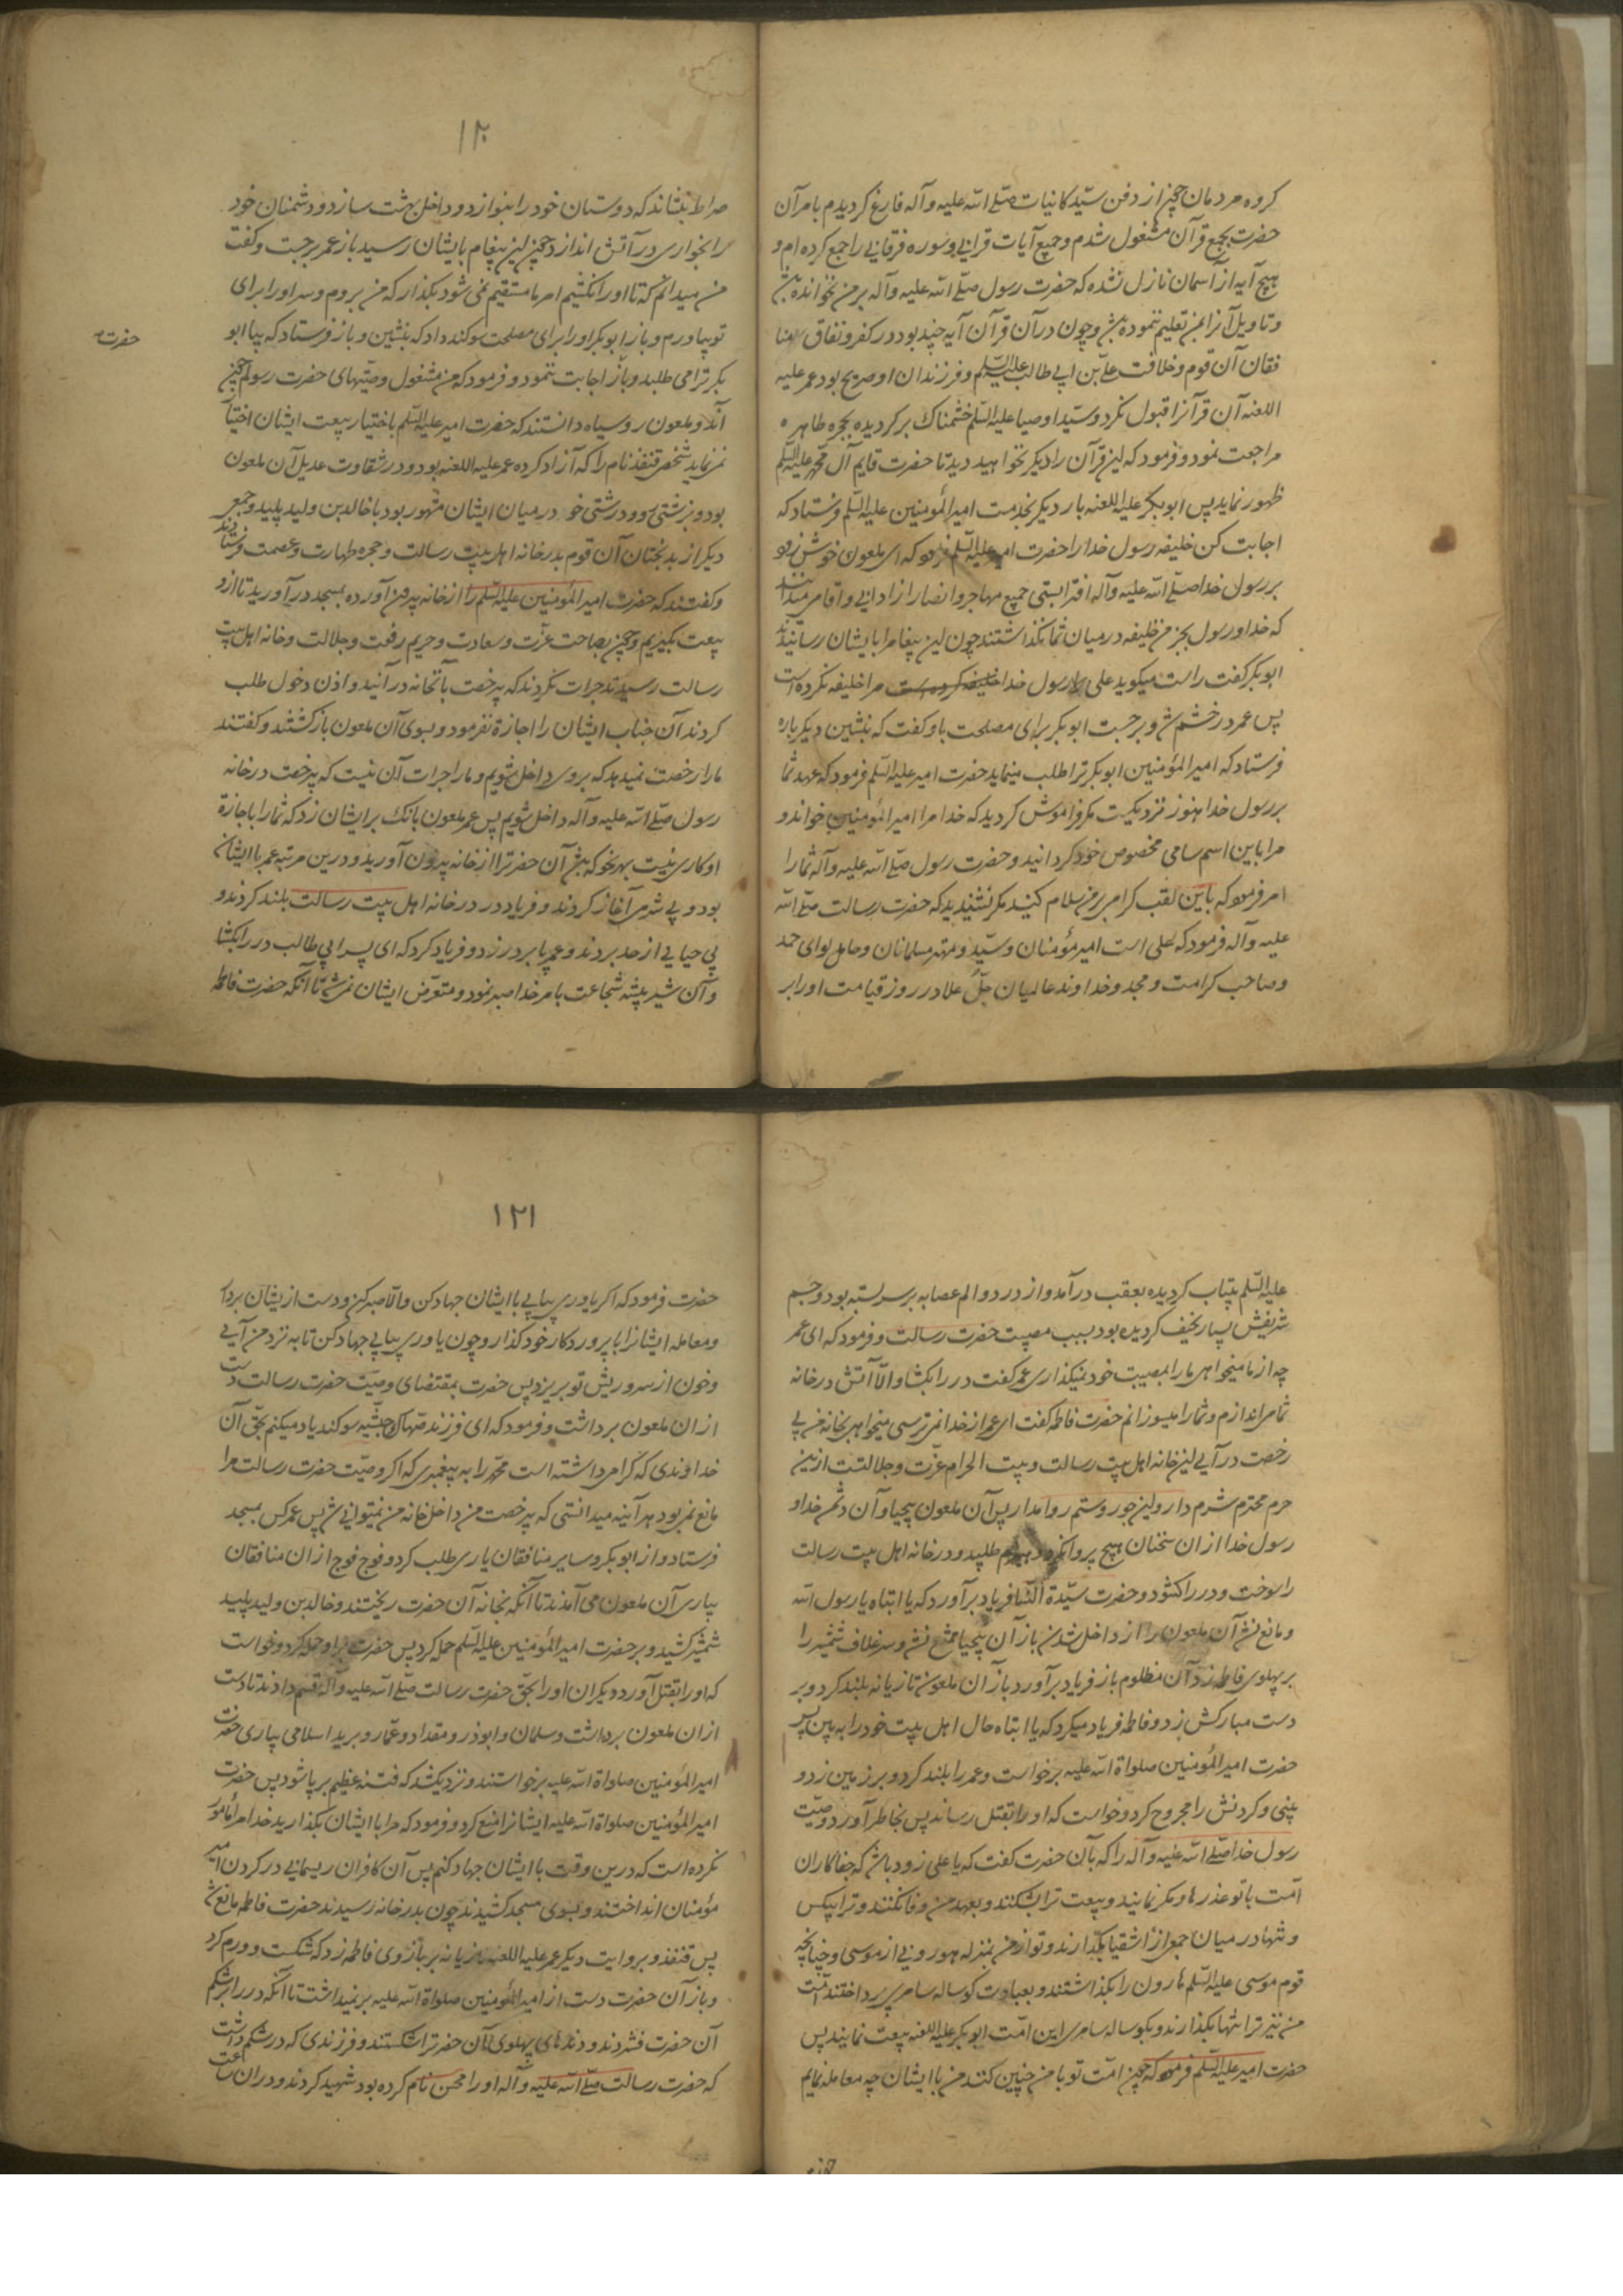 کروه مردمان چون از دفن سیّد کاینات صلّی الله علیه و آله فارغ کردیدم بامر آن
حضرت بجمع قرآن مشغول شدم و جمیع آیات قرآنی و سوره فرقانی را جمع کرده ام و
هیچ آیه از آسمان نازل نشده که حضرت رسول صلّی الله علیه و آله بر من نخوانده باشد
و تاویل آنرا بمن تعلیم ننموده باشد و چون در آن قرآن آیه چند بود در کفر و نفاق منا
فقان آن قوم و خلافت علی بن ابی طالب علیه السّلم و فرزندان او صریح بود عمر علیه
اللعنه آن قرآنرا قبول نکرد و سیّد اوصیا علیه السّلم خشمناک برکردیده بحجره طاهره
مراجعت نمود و فرمود که این قرآن را دیکر نخواهید دید تا حضرت قایم آل محمّد علیه السّلم
ظهور نماید پس ابوبکر علیه اللعنه بار دیکر بخدمت امیر المؤمنین علیه السّلم فرستاد که
اجابت کن خلیفه رسول خدا را حضرت امیر علیه السّلم فرمود که ای ملعون خوش زود
بر رسول خدا صلّی الله علیه و آله افترا بستی جمیع مهاجر و انصار از ادانی و اقاصی میدانند
که خدا و رسول بجز من خلیفه در میان شما نکذاشتند چون این پیغامرا بایشان رسانیدند
ابوبکر کفت راست میکوید علی را رسول خدا خلیفه کرده است مرا خلیفه نکرده است
پس عمر در خشم شد و برجست ابوبکر برای مصلحت باو کفت که بنشین دیکر باره
فرستاد که امیر المؤمنین ابوبکر ترا طلب مینماید حضرت امیر علیه السّلم فرمود که عهد شما
بر رسول خدا هنوز نزدیکست مکر فراموش کردید که خدا مرا امیر المؤمنین خواند و
مرا باین اسم سامی مخصوص خود کردانید و حضرت رسول صلّی الله علیه و آله شما را
امر فرمود که باین لقب کرامی بر من سلام کنید مکر نشنیدید که حضرت رسالت صلّی الله
علیه و آله فرمود که علی است امیر مؤمنان و سیّد و مهتر مسلمانان و حامل لوای حمد
و صاحب کرامت و مجد و خداوند عالمیان جلّ علا در روز قیامت او را بر
۱۲۰
صراط بنشاند که دوستان خود را بنوازد و داخل بهشت سازد و دشمنان خود
را بخواری در آتش اندازد چون این پیغام بایشان رسید باز عمر برجست و کفت
من میدانم که تا او را نکشیم امر ما مستقیم نمی شود بکذار که من بروم و سر او را برای
تو بیاورم و باز ابوبکر او را برای مصلحت سوکند داد که بنشین و باز فرستاد که بیا ابو
بکر ترا می طلبد و باز اجابت ننمود و فرمود که من مشغول وصیّتهای حضرت رسولم چون
آندو ملعون روسیاه دانستند که حضرت امیر علیه السّلم باختیار بیعت ایشان اختیار
نمی نماید شخصی قنفذ نام را که آزاد کرده عمر علیه اللعنه بود و در شقاوت عدیل آن ملعون
بود و بزشتی رو و درشتی خو در میان ایشان مشهور بود با خالد بن ولید پلید و جمعی
دیکر از بدبختان آن قوم بدر خانه اهل بیت رسالت و حجره طهارت و عصمت فرستادند
و کفتند که حضرت امیر المؤمنین علیه السّلم را از خانه بیرون آورده بمسجد در آورید تا از او
بیعت بکیریم و چون بصاحت عزّت و سعادت و حریم رفعت و جلالت و خانه اهل بیت
رسالت رسیدند جرات نکردند که بیرخصت بآنخانه درآنید و اذن دخول طلب
کردند آن جناب ایشان را اجازة نفرمود و بسوی آن ملعون بازکشتند و کفتند
ما را رخصت نمیدهد که بر وی داخل شویم و ما را جرات آن نیست که بیرخصت در خانه
رسول صلّی الله علیه و آله داخل شویم پس عمر ملعون بانک بر ایشان زد که شما را با اجازة
او کاری نیست بهر نحو که باشد آن حضرترا از خانه بیرون آورید و درین مرتبه عمر با ایشان
بود و بی شرمی آغاز کردند و فریاد در در خانه اهل بیت رسالت بلند کردند و
بی حیایی از حد بردند و عمر پا بر در زد و فریاد کرد که ای پسر ابی طالب در را بکشا
و آن شیر بیشه شجاعت بامر خدا صبر نمود و متعرّض ایشان نمی شد تا آنکه حضرت فاطمه
حضرت
علیه السّلم بیتاب کردیده بعقب در آمد و از درد و الم عصابه بر سر بسته بود و جسم
شریفش بسیار نحیف کردیده بود بسبب مصیبت حضرت رسالت و فرمود که ای عمر
چه از ما میخواهی ما را بمصیبت خود نمیکذاری عمر کفت در را بکشا والّا آتش در خانه
شما می اندازم و شما را میسوزانم حضرت فاطمه کفت ای عمر از خدا نمی ترسی میخواهی بخانه من بی
رخصت درآیی این خانه اهل بیت رسالت و بیت الحرام عزّت و جلالتست ازین
حرم محترم شرم دار و این جور و ستم روا مدار پس آن ملعون بیحیا و آن دشمن خدا و
رسول خدا از ان سخنان هیچ پروا نکرد و هیزم طلبید و در خانه اهل بیت رسالت
را سوخت و در را کشود و حضرت سیّدة النّسا فریاد برآورد که یا ابتاه یا رسول الله
و مانع شد آن ملعون را از داخل شدن باز آن بیحیا ممتنع نشد و سر غلاف شمشیر را
بر پهلوی فاطمه زد آن مظلوم باز فریاد برآورد باز آن ملعون تازیانه بلند کرد و بر
دست مبارکش زد و فاطمه فریاد میکرد که یا ابتاه حال اهل بیت خود را به بین پس
حضرت امیر المؤمنین صلواة الله علیه برخواست و عمر را بلند کرد و بر زمین زد و
بینی و کردنش را مجروح کرد و خواست که او را بقتل رساند پس بخاطر آورد وصیّت
رسول خدا صلّی الله علیه و آله را که بآن حضرت کفت که یا علی زود باشد که جفاکاران
امّت با تو غدرها و مکر نمایند و بیعت ترا بشکنند و بعهد من وفا نکنند و ترا بیکس
و تنها در میان جمعی از اشقیا بکذارند و تو از من بمنزله هورونی از موسی و چنانچه
قوم موسی علیه السّلم هارون را بکذاشتند و بعبادت کوساله سامری پرداختند امّت
من نیز ترا تنها بکذارند و بکوساله سامری این امّت ابوبکر علیه اللعنه بیعت نمایند پس
حضرت امیر علیه السّلم فرمود که چون امّت تو با من چنین کنند من با ایشان چه معامله نمایم
۱۲۱
حضرت فرمود که اکر یاوری بیابی با ایشان جهاد کن والّا صبر کن و دست از ایشان بردار
و معامله ایشانرا با پروردکار خود کذار و چون یاوری بیابی جهاد کن تا به نزد من آیی
و خون از سر و ریش تو بریزد پس حضرت بمقتضای وصیّت حضرت رسالت دست
از ان ملعون برداشت و فرمود که ای فرزند صهاک حبشیّه سوکند یاد میکنم بحق آن
خداوندی که کرامی داشته است محمّد را به پیغمبری که اکر وصیّت حضرت رسالت مرا
مانع نمی بود هر آینه میدانستی که بیرخصت من داخل خانه من نمیتوانی شد پس عمر کس بمسجد
فرستاد و از ابوبکر و سایر منافقان یاری طلب کرد و فوج فوج از ان منافقان
بیاری آن ملعون می آمدند تا آنکه بخانه آن حضرت ریختند و خالد بن ولید پلید
شمشیر کشید و بر حضرت امیر المؤمنین علیه السّلم حمله کرد پس حضرت بر او حمله کرد و خواست
که او را بقتل آورد دیکران او را بحق حضرت رسالت صلّی الله علیه و آله قسم دادند تا دست
از ان ملعون برداشت و سلمان و ابوذر و مقداد و عمّار و برید اسلامی بیاری حضرت
امیر المؤمنین صلواة الله علیه برخواستند و نزدیک شد که فتنه عظیم برپا شود پس حضرت
امیر المؤمنین صلواة الله علیه ایشانرا منع کرد و فرمود که مرا با ایشان بکذارید خدا مرا مامور
نکرده است که درین وقت با ایشان جهاد کنم پس آن کافران ریسمانی در کردن امیر
مؤمنان انداختند و بسوی مسجد کشیدند چون بدر خانه رسیدند حضرت فاطمه مانع شد
پس قنفذ و بروایت دیکر عمر علیه اللعنه تازیانه بر بازوی فاطمه زد که شکست و ورم کرد
و باز آن حضرت دست از امیر المؤمنین صلواة الله علیه برنمیداشت تا آنکه در را بر شکم
آن حضرت فشردند و دندهای پهلوی آن حضرترا شکستند و فرزندی که در شکم داشت
که حضرت رسالت صلّی الله علیه و آله او را محسن نام کرده بود شهید کردند و در ان ساعت